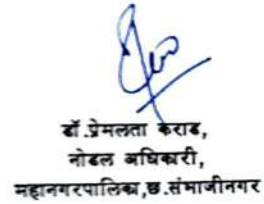 डॉ.प्रेमलता कराड,
नोडल अधिकारी,
महानगरपालिका,छ.संभाजीनगर